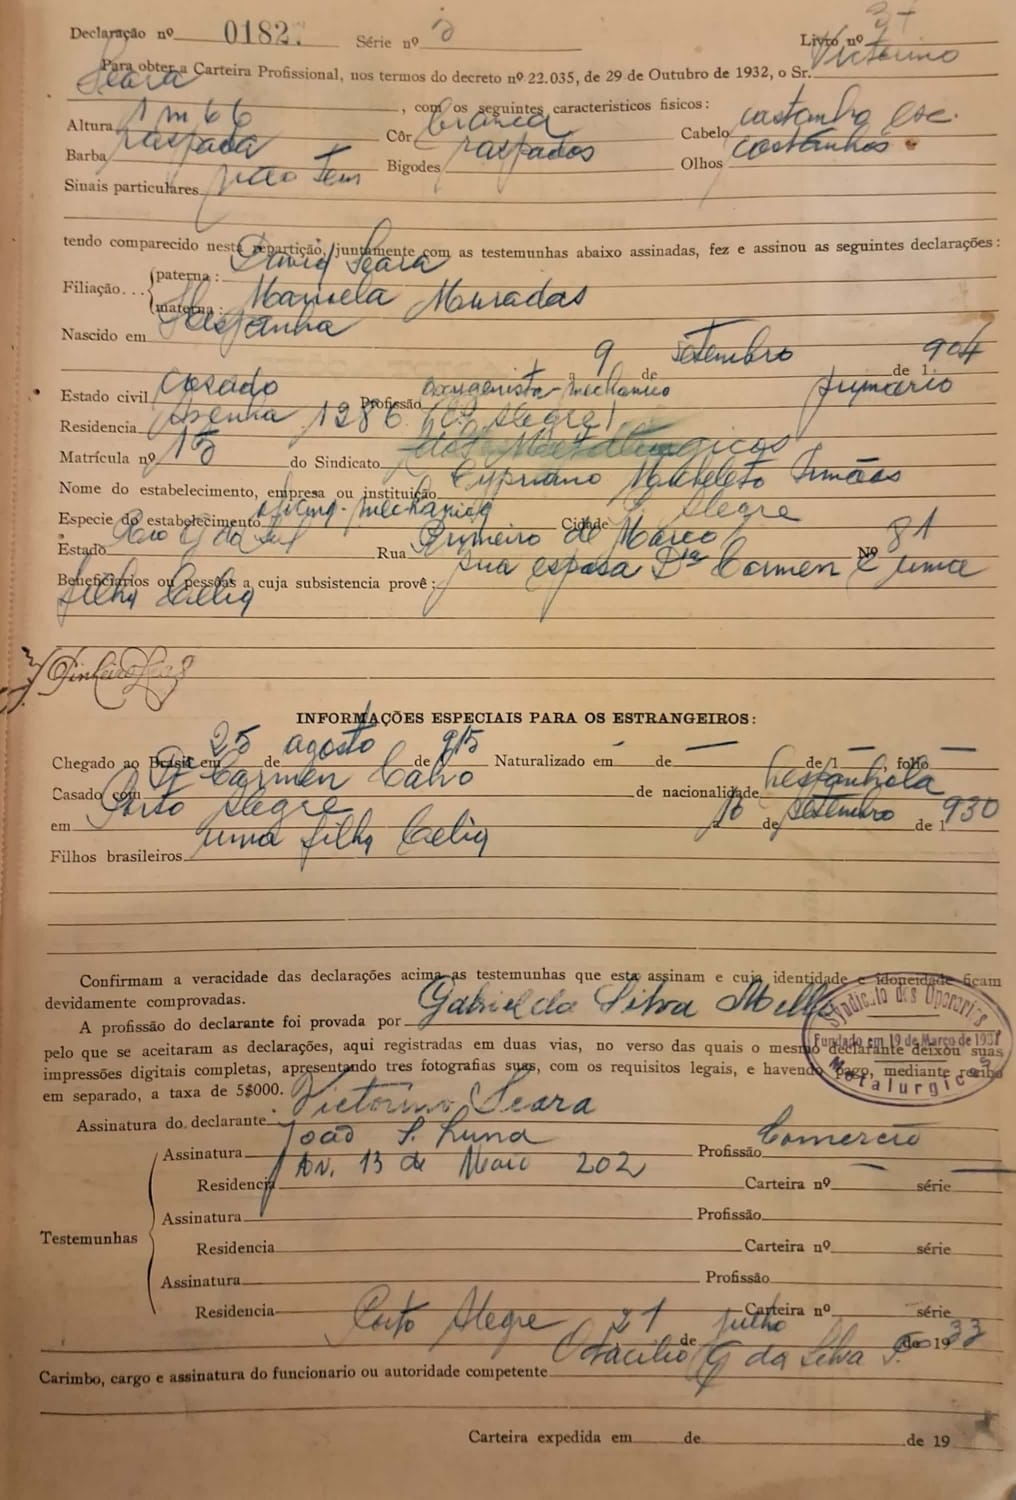 Declaração nº 0182. Série nº Livro nº 3
Para obter a Carteira Profissional, nos termos do decreto nº 22.035, de 29 de Outubro de 1932, o Sr. Victorino
Seara, com os seguintes caracteristicos fisicos:
Altura 1 m 66 Côr branca Cabelo castanho esc.
Barba raspada Bigodes raspados Olhos castanhos
Sinais particulares não tem
tendo comparecido nesta repartição, juntamente com as testemunhas abaixo assinadas, fez e assinou as seguintes declarações:
Filiação... paterna: David Seara
materna: Manuela Mouradas
Nascido em Hespanha
a 9 de setembro de 1904
Estado civil casado Profissão mechanico primario
Residencia 1286 (P. Alegre)
Matrícula nº 15 do Sindicato dos Metallurgicos
Nome do estabelecimento, empresa ou instituição Cypriano Irmãos
Especie do estabelecimento mechanica Cidade P. Alegre
Estado Rio G. do Sul Rua Primeiro de Março Nº 81
Beneficiarios ou pessôas a cuja subsistencia provê: sua esposa Dna Carmen e uma
filha Celia
INFORMAÇÕES ESPECIAIS PARA OS ESTRANGEIROS:
Chegado ao Brasil em 25 de agosto de 915 Naturalizado em — de — de 1 —, folio —
Casado com Da Carmen Calvo de nacionalidade hespanhola
em Porto Alegre a 16 de setembro de 1930
Filhos brasileiros uma filha Celia
Confirmam a veracidade das declarações acima as testemunhas que esta assinam e cuja identidade e idoneidade ficam
devidamente comprovadas.
A profissão do declarante foi provada por Gabriel da Silva Mello
pelo que se aceitaram as declarações, aqui registradas em duas vias, no verso das quais o mesmo declarante deixou suas
impressões digitais completas, apresentando tres fotografias suas, com os requisitos legais, e havendo pago, mediante recibo
em separado, a taxa de 5$000.
Syndicato dos Operarios
Fundado em 19 de Março de 1931
Metalurgicos
Assinatura do declarante Victorino Seara
Testemunhas
Assinatura João S. Luna Profissão Comercio
Residencia Av. 13 de Maio 202 Carteira nº — série —
Assinatura Profissão
Residencia Carteira nº série
Assinatura Profissão
Residencia Carteira nº série
Porto Alegre 21 de julho de 1933
Carimbo, cargo e assinatura do funcionario ou autoridade competente Otacilio G da Silva
Carteira expedida em de de 19